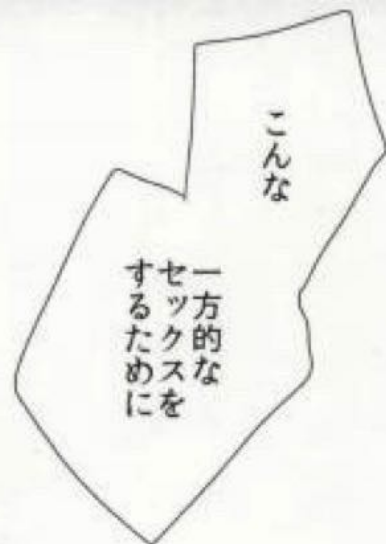 こんな
一方的な
セックスを
するために